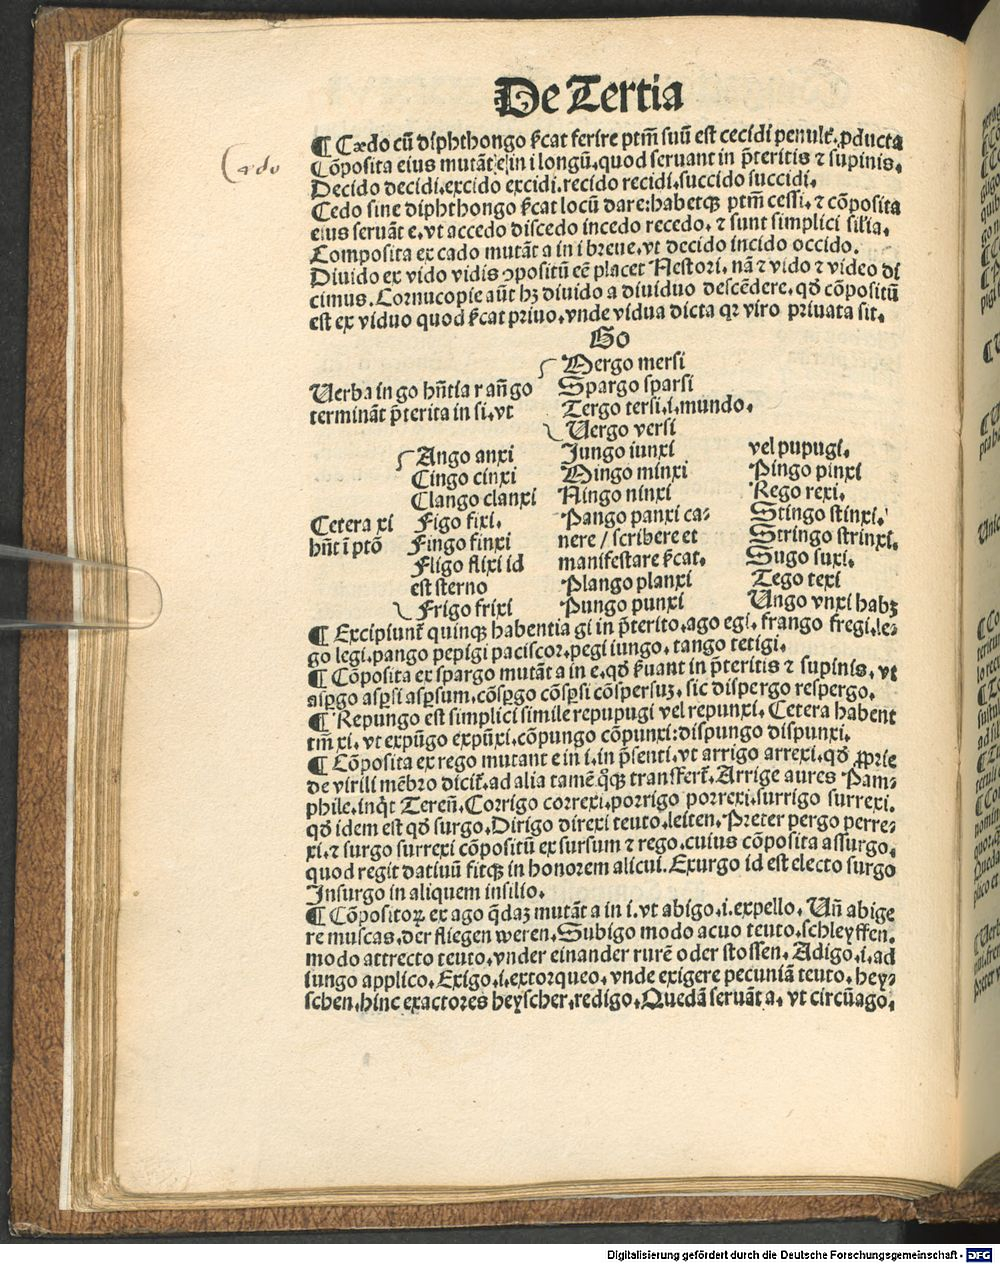 De Tertia
¶ Cædo cū diphthongo ſ̄cat ferire ptm̄ suū est cecidi penult̄. ꝓducta
Cædo
Cōposita eius mutāt e in i longū. quod seruant in p̄teritis ⁊ supinis.
Decido decidi. excido excidi. recido recidi. succido succidi.
Cedo sine diphthongo ſ̄cat locū dare: habetqꝫ ptm̄ cessi. ⁊ cōposita
eius seruāt e. vt accedo discedo incedo recedo. ⁊ sunt simplici sil'ia.
Composita ex cado mutāt a in i breue. vt decido incido occido.
Diuido ex vido vidis ↄpositū cē placet Nestori. nā ⁊ vido ⁊ video di
cimus. Cornucopie aūt hꝫ diuido a diuiduo descēdere. qd̄ cōpositū
est ex viduo quod ſ̄cat priuo. vnde vidua dicta qꝛ viro priuata sit.
Go
Mergo mersi
Uerba in go hn̄tia r an̄ go
Spargo sparsi
termināt p̄terita in si. vt
Tergo tersi. i. mundo.
Uergo versi
Ango anxi
Cingo cinxi
Clango clanxi
Cetera xi
Figo fixi.
hn̄t ī ptō
Fingo finxi
Fligo flixi id
est sterno
Frigo frixi
Jungo iunxi
Mingo minxi
Ningo ninxi
Pango panxi ca⸗
nere / scribere et
manifestare ſ̄cat.
Plango planxi
Pungo punxi
vel pupugi.
Pingo pinxi
Rego rexi.
Stingo stinxi.
Stringo strinxi.
Sugo suxi.
Tego texi
Ungo vnxi habꝫ
¶ Excipiunt̄ quinqꝫ habentia gi in p̄terito. ago egi. frango fregi. le⸗
go legi. pango pepigi paciscor. pegi iungo. tango tetigi.
¶ Cōposita ex spargo mutāt a in e. qd̄ ſ̄uant in p̄teritis ⁊ supinis. vt
asꝑgo asꝑsi asꝑsum. cōsꝑgo cōsꝑsi cōspersuꝫ. sic dispergo respergo.
¶ Repungo est simplici simile repupugi vel repunxi. Cetera habent
tm̄ xi. vt expūgo expūxi. cōpungo cōpunxi: dispungo dispunxi.
¶ Cōposita ex rego mutant e in i. in p̄senti. vt arrigo arrexi. qd̄ ꝓprie
de virili mēbro dicit̄. ad alia tamē q̄qꝫ transfert̄. Arrige aures Pam⸗
phile. inq̇t Tereñ. Corrigo correxi. porrigo porrexi. surrigo surrexi.
qd̄ idem est qd̄ surgo. Dirigo direxi teuto. leiten. Preter pergo perre⸗
xi. ⁊ surgo surrexi cōpositū ex sursum ⁊ rego. cuius cōposita assurgo.
quod regit datiuū fitqꝫ in honorem alicui. Exurgo id est electo surgo
Insurgo in aliquem insilio.
¶ Cōpositoꝝ ex ago q̄daꝫ mutāt a in i. vt abigo. i. expello. Uñ abige
re muscas. der fliegen weren. Subigo modo acuo teuto. schleyffen.
modo attrecto teuto. vnder einander rurē oder stossen. Adigo. i. ad
iungo applico. Exigo. i. extorqueo. vnde exigere pecuniā teuto. hey⸗
schen. hinc exactores heyscher. redigo. Quedā seruāt a. vt circūago.
Digitalisierung gefördert durch die Deutsche Forschungsgemeinschaft - DFG